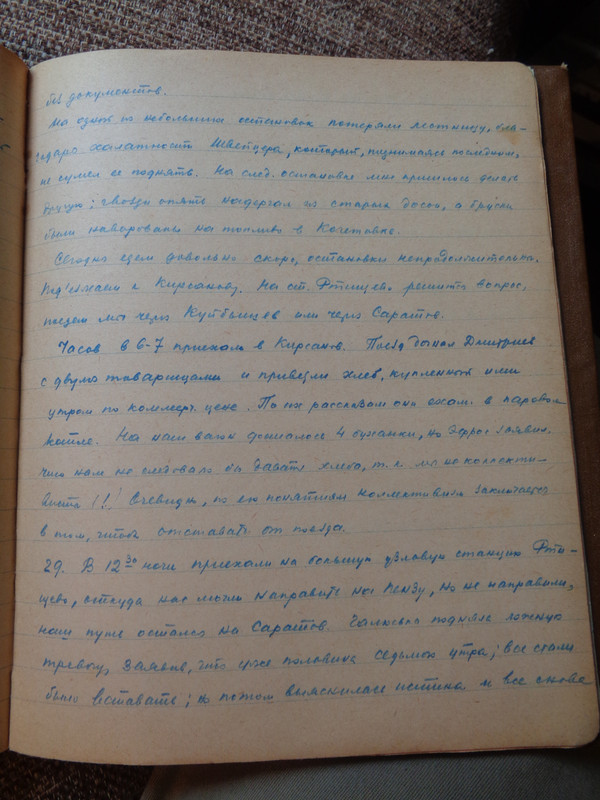 без документов.
На одной из небольших остановок потеряли лестницу, бла-
годаря халатности Швейцера, который, поднимаясь последним,
не сумел ее поднять. На след. остановке мне пришлось делать
другую; гвозди опять надергал из старых досок, а бруски
были наворованы на топливо в Кочетовке.
Сегодня едем довольно скоро, остановки непродолжительны.
Под'езжаем к Кирсанову. На ст. Ртищево решится вопрос,
поедем мы через Куйбышев или через Саратов.
Часов в 6-7 приехали в Кирсанов. Поезд догнал Дмитриев
с двумя товарищами и привезли хлеб, купленный ими
утром по коммерч. цене. По их рассказам они ехали в паровом
котле. На наш вагон досталось 4 буханки, но Эфрос заявил,
что нам не следовало бы давать хлеба, т. к. мы не коллекти-
висты (!) Очевидно, по его понятиям коллективизм заключается
в том, чтобы отставать от поезда.
29. В 12 30 ночи приехали на большую узловую станцию Рти-
щево, откуда нас могли направить на Пензу, но не направили,
наш путь остался на Саратов. подняла ложную
тревогу, заявив, что уже половина седьмого утра; все стали
было вставать; но потом выяснилась истина и все снова